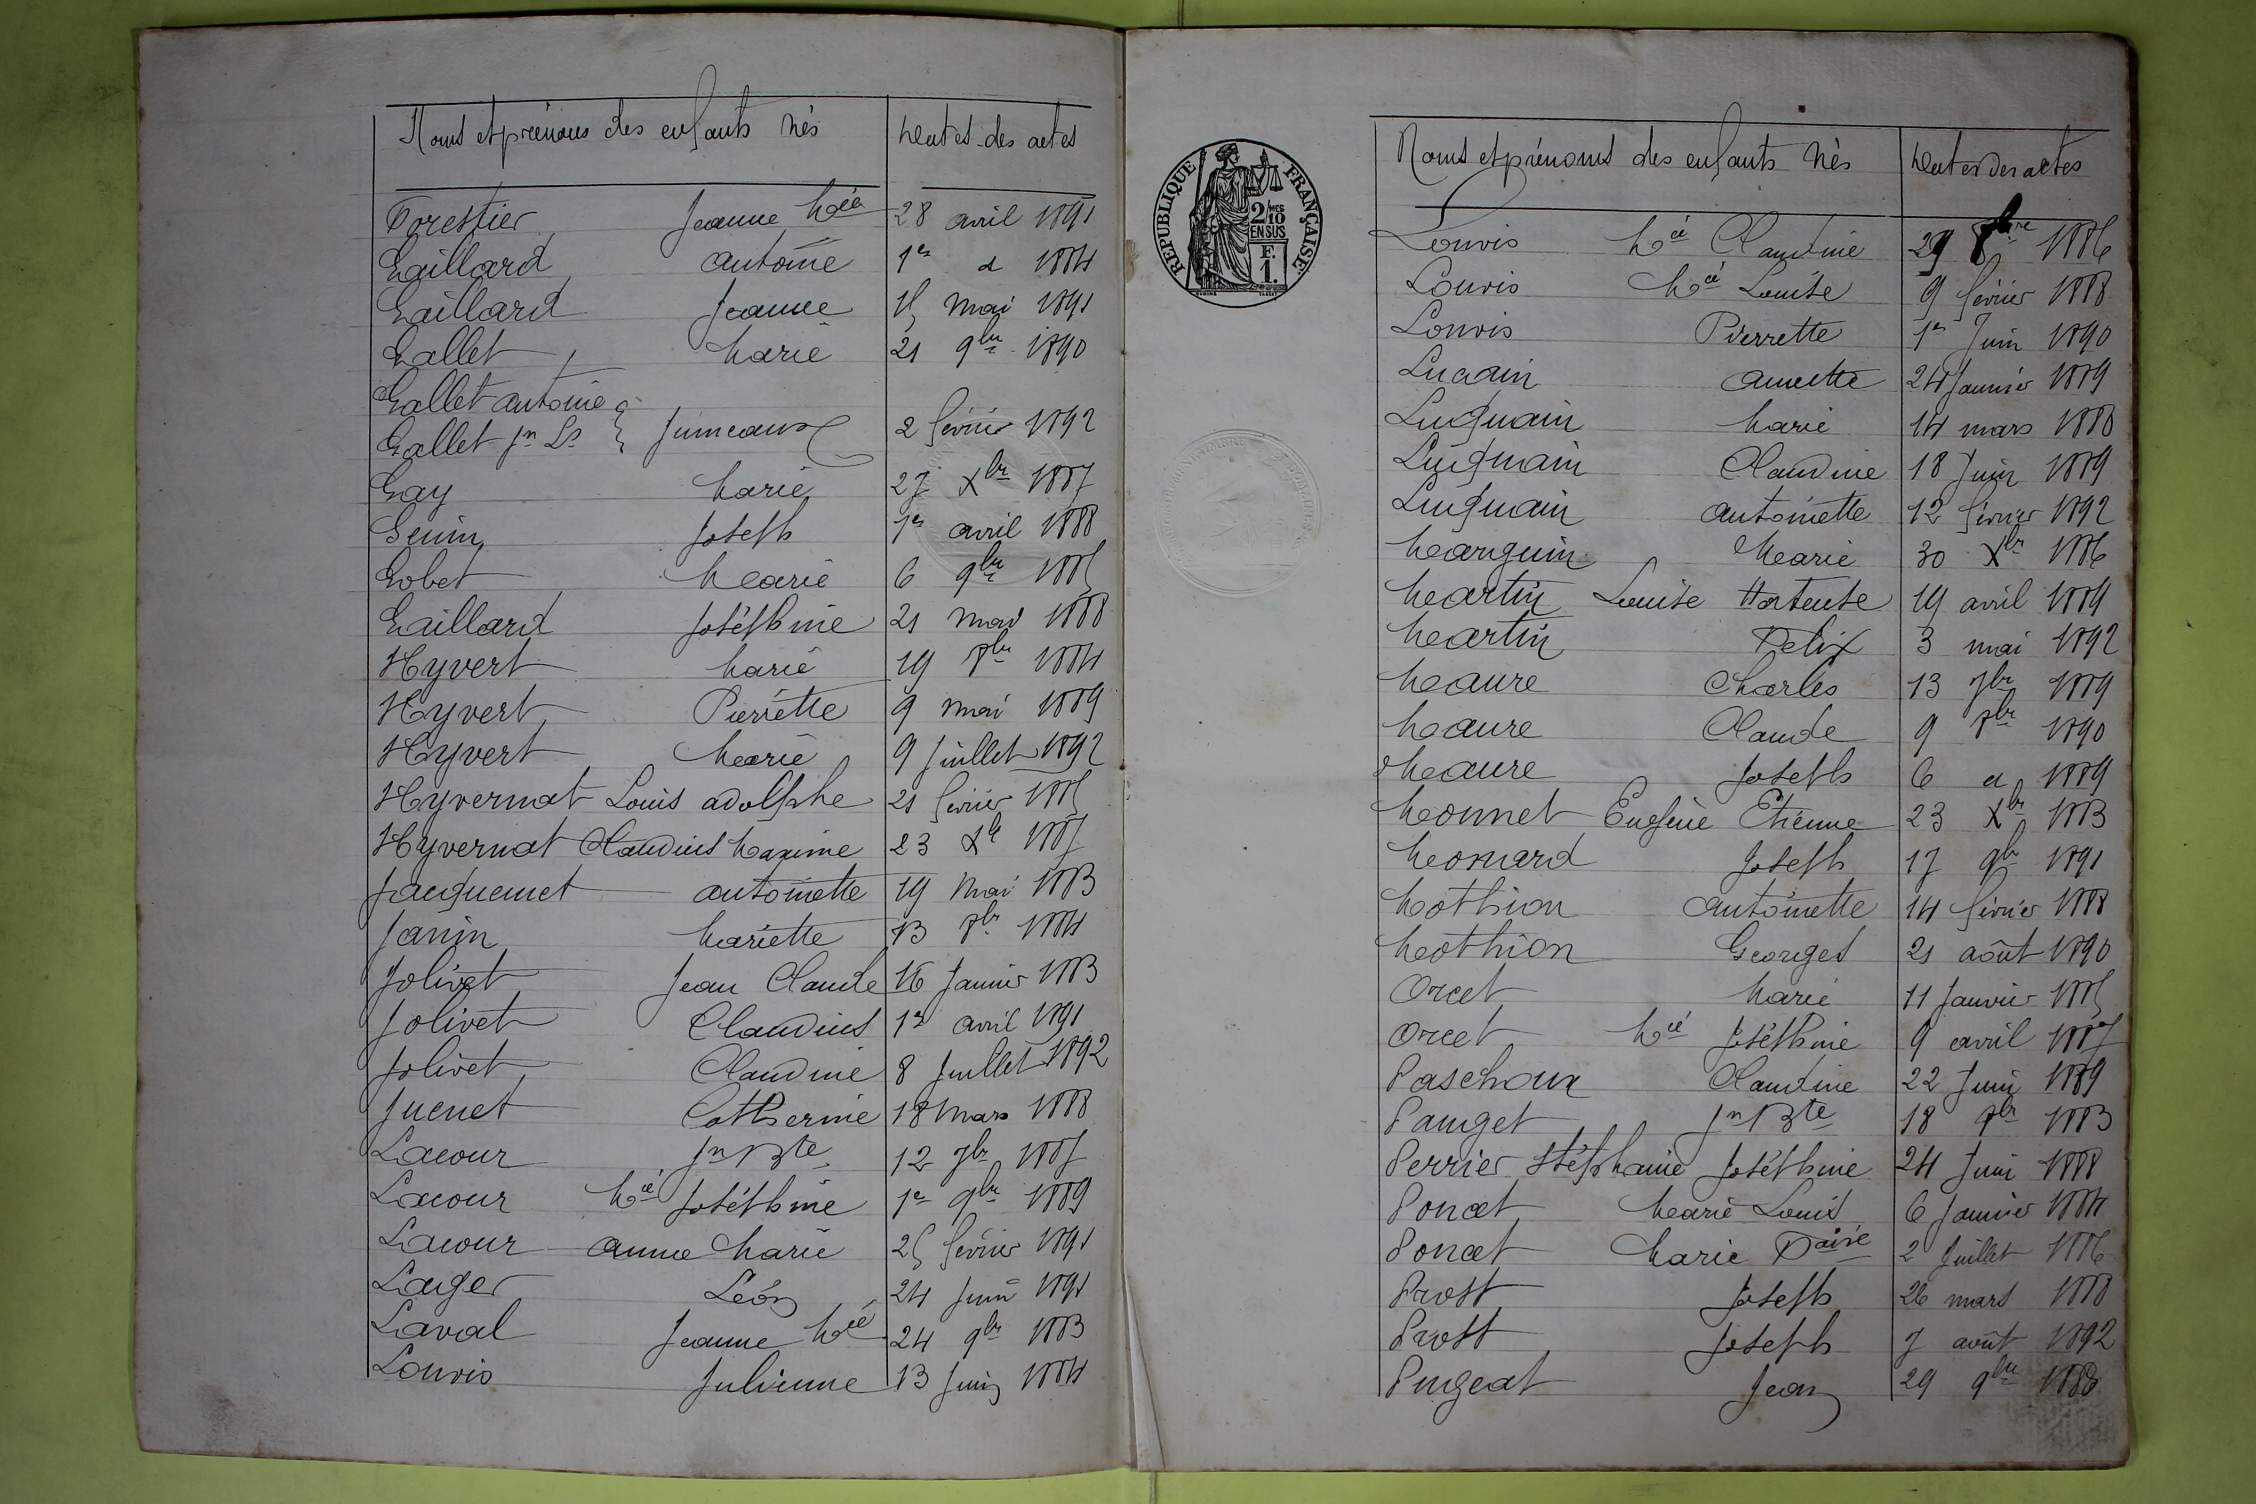 Noms et prénoms des enfants nés Dates des actes
Forestier Jeanne Mie 28 avril 1891
Gaillard antoine 1er d 1884
Gaillard Jeanne 15 mai 1891
Gallet Marie 21 9bre 1890
Gallet antoine
Gallet Jn Ls Jumeaux 2 février 1892
Gay Marie 27 Xbre 1887
Genin Joseph 1er avril 1888
Gobet Marie 6 9bre 1885
Gaillard Joséphine 21 mai 1888
Hyvert Marie 19 8bre 1884
Hyvert Pierrette 9 mai 1889
Hyvert Marie 9 Juillet 1892
Hyvernat Louis adolphe 21 février 1885
Hyvernat Claudius Maxime 23 Xbr 1887
Jacquemet antoinette 19 Mai 1883
Janin Mariette 13 8br 1884
Jolivet Jean Claude 16 Janvier 1883
Jolivet Claudius 1er avril 1891
Jolivet Claudine 8 Juillet 1892
Juenet Catherine 18 Mars 1888
Lacour Jn Bte 12 7br 1887
Lacour Mie Joséphine 1er 9bre 1889
Lacour anne Marie 25 février 1891
Lager Léon 24 Juin 1891
Laval Jeanne Mie 24 9br 1883
Louvis Julienne 13 Juin 1884
RÉPUBLIQUE FRANÇAISE
2/10 MES
EN SUS
F.
1.
Noms et prénoms des enfants Nés Dates des actes
Louvis Mie Claudine 29 8bre 1886
Louvis Mie Louise 9 février 1888
Louvis Pierrette 1er Juin 1890
Lucain annette 24 Janvier 1889
Luquain Marie 14 mars 1888
Luquain Claudine 18 Juin 1889
Luquain antoinette 12 février 1892
Manguin Marie 30 Xbr 1886
Martin Louise Hortense 19 avril 1889
Martin Felix 3 mai 1892
Maure Charles 13 7br 1889
Maure Claude 9 8br 1890
Maure Joseph 6 d 1889
Monnet Eugène Etienne 23 Xbr 1883
Monnard Joseph 17 9br 1891
Mothion Antoinette 14 février 1888
Mothion Georges 21 août 1890
Orcet Marie 11 Janvier 1885
Orcet Mie Joséphine 9 avril 1887
Paschoux Claudine 22 Juin 1889
Pauget Jn Bte 18 9br 1883
Perrier Stéphanie Joséphine 24 Juin 1888
Poncet Marie Louis 6 Janvier 1884
Poncet Marie 2 Juillet 1886
Prost Joseph 26 mars 1888
Prost Joseph 7 août 1892
Pugeat Jean 29 9bre 1888